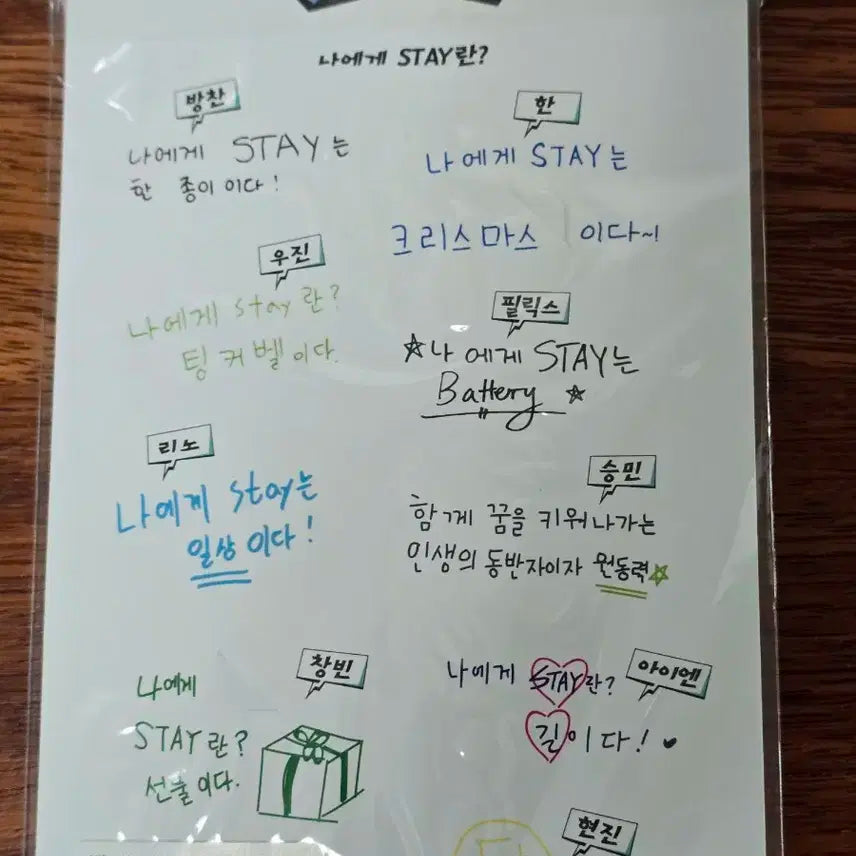 나에게 STAY란?
방찬
나에게 STAY는
한 종이 이다!
한
나에게 STAY는
크리스마스 이다~!
우진
나에게 stay란?
팅커벨이다.
필릭스
☆나에게 STAY는
Battery ☆
리노
나에게 stay는
일상이다!
승민
함께 꿈을 키워나가는
인생의 동반자이자 원동력☆
창빈
나에게
STAY란?
선물이다.
아이엔
나에게 STAY란?
길이다! ♥
현진